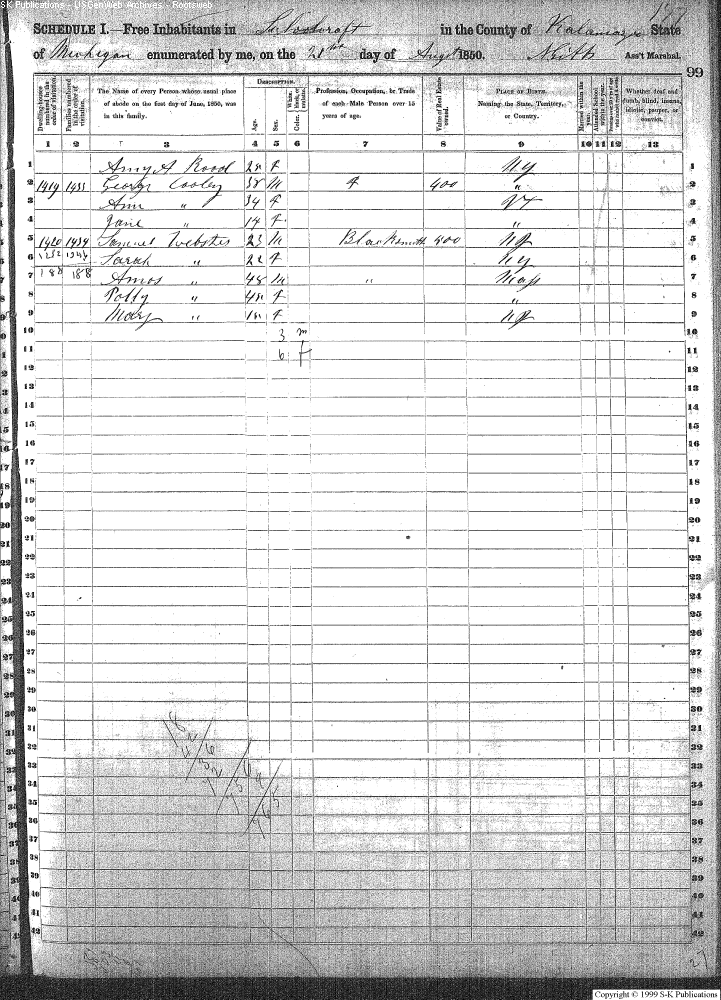 SK Publications - USGenWeb Archives - Rootsweb
SCHEDULE I.—Free Inhabitants in Schoolcraft in the County of Kalamazoo State
of Michigan enumerated by me, on the day of Augt 1850. Ass't Marshal.
99
DESCRIPTION.
Dwelling-houses numbered in the order of visitation.
Families numbered in the order of visitation.
The Name of every Person whose usual place of abode on the first day of June, 1850, was in this family.
Age.
Sex.
Color. White, black, or mulatto.
Profession, Occupation, or Trade of each Male Person over 15 years of age.
Value of Real Estate owned.
PLACE OF BIRTH. Naming the State, Territory, or Country.
Married within the year.
Attended School within the year.
Whether deaf and dumb, blind, insane, idiotic, pauper, or convict.
1 2 3 4 5 6 7 8 9 10 11 12 13
1 Amy A Rood 28 f NY 1
2 1419 1433 George Cooley 38 m 400 " 2
3 Ann " 34 f 3
4 Jane " 14 f " 4
5 1420 1434 Samuel Webster 23 m Blacksmith 400 5
6 Sarah " 22 f NY 6
7 Amos " 48 m " Mass 7
8 Polly " 48 f " 8
9 Mary " 18 f 9
10 3 m 10
11 6 f 11
12 12
13 13
14 14
15 15
16 16
17 17
18 18
19 19
20 20
21 21
22 22
23 23
24 24
25 25
26 26
27 27
28 28
29 29
30 30
31 31
32 32
33 33
34 34
35 35
36 36
37 37
38 38
39 39
40 40
41 41
42 42
Copyright © 1999 S-K Publications